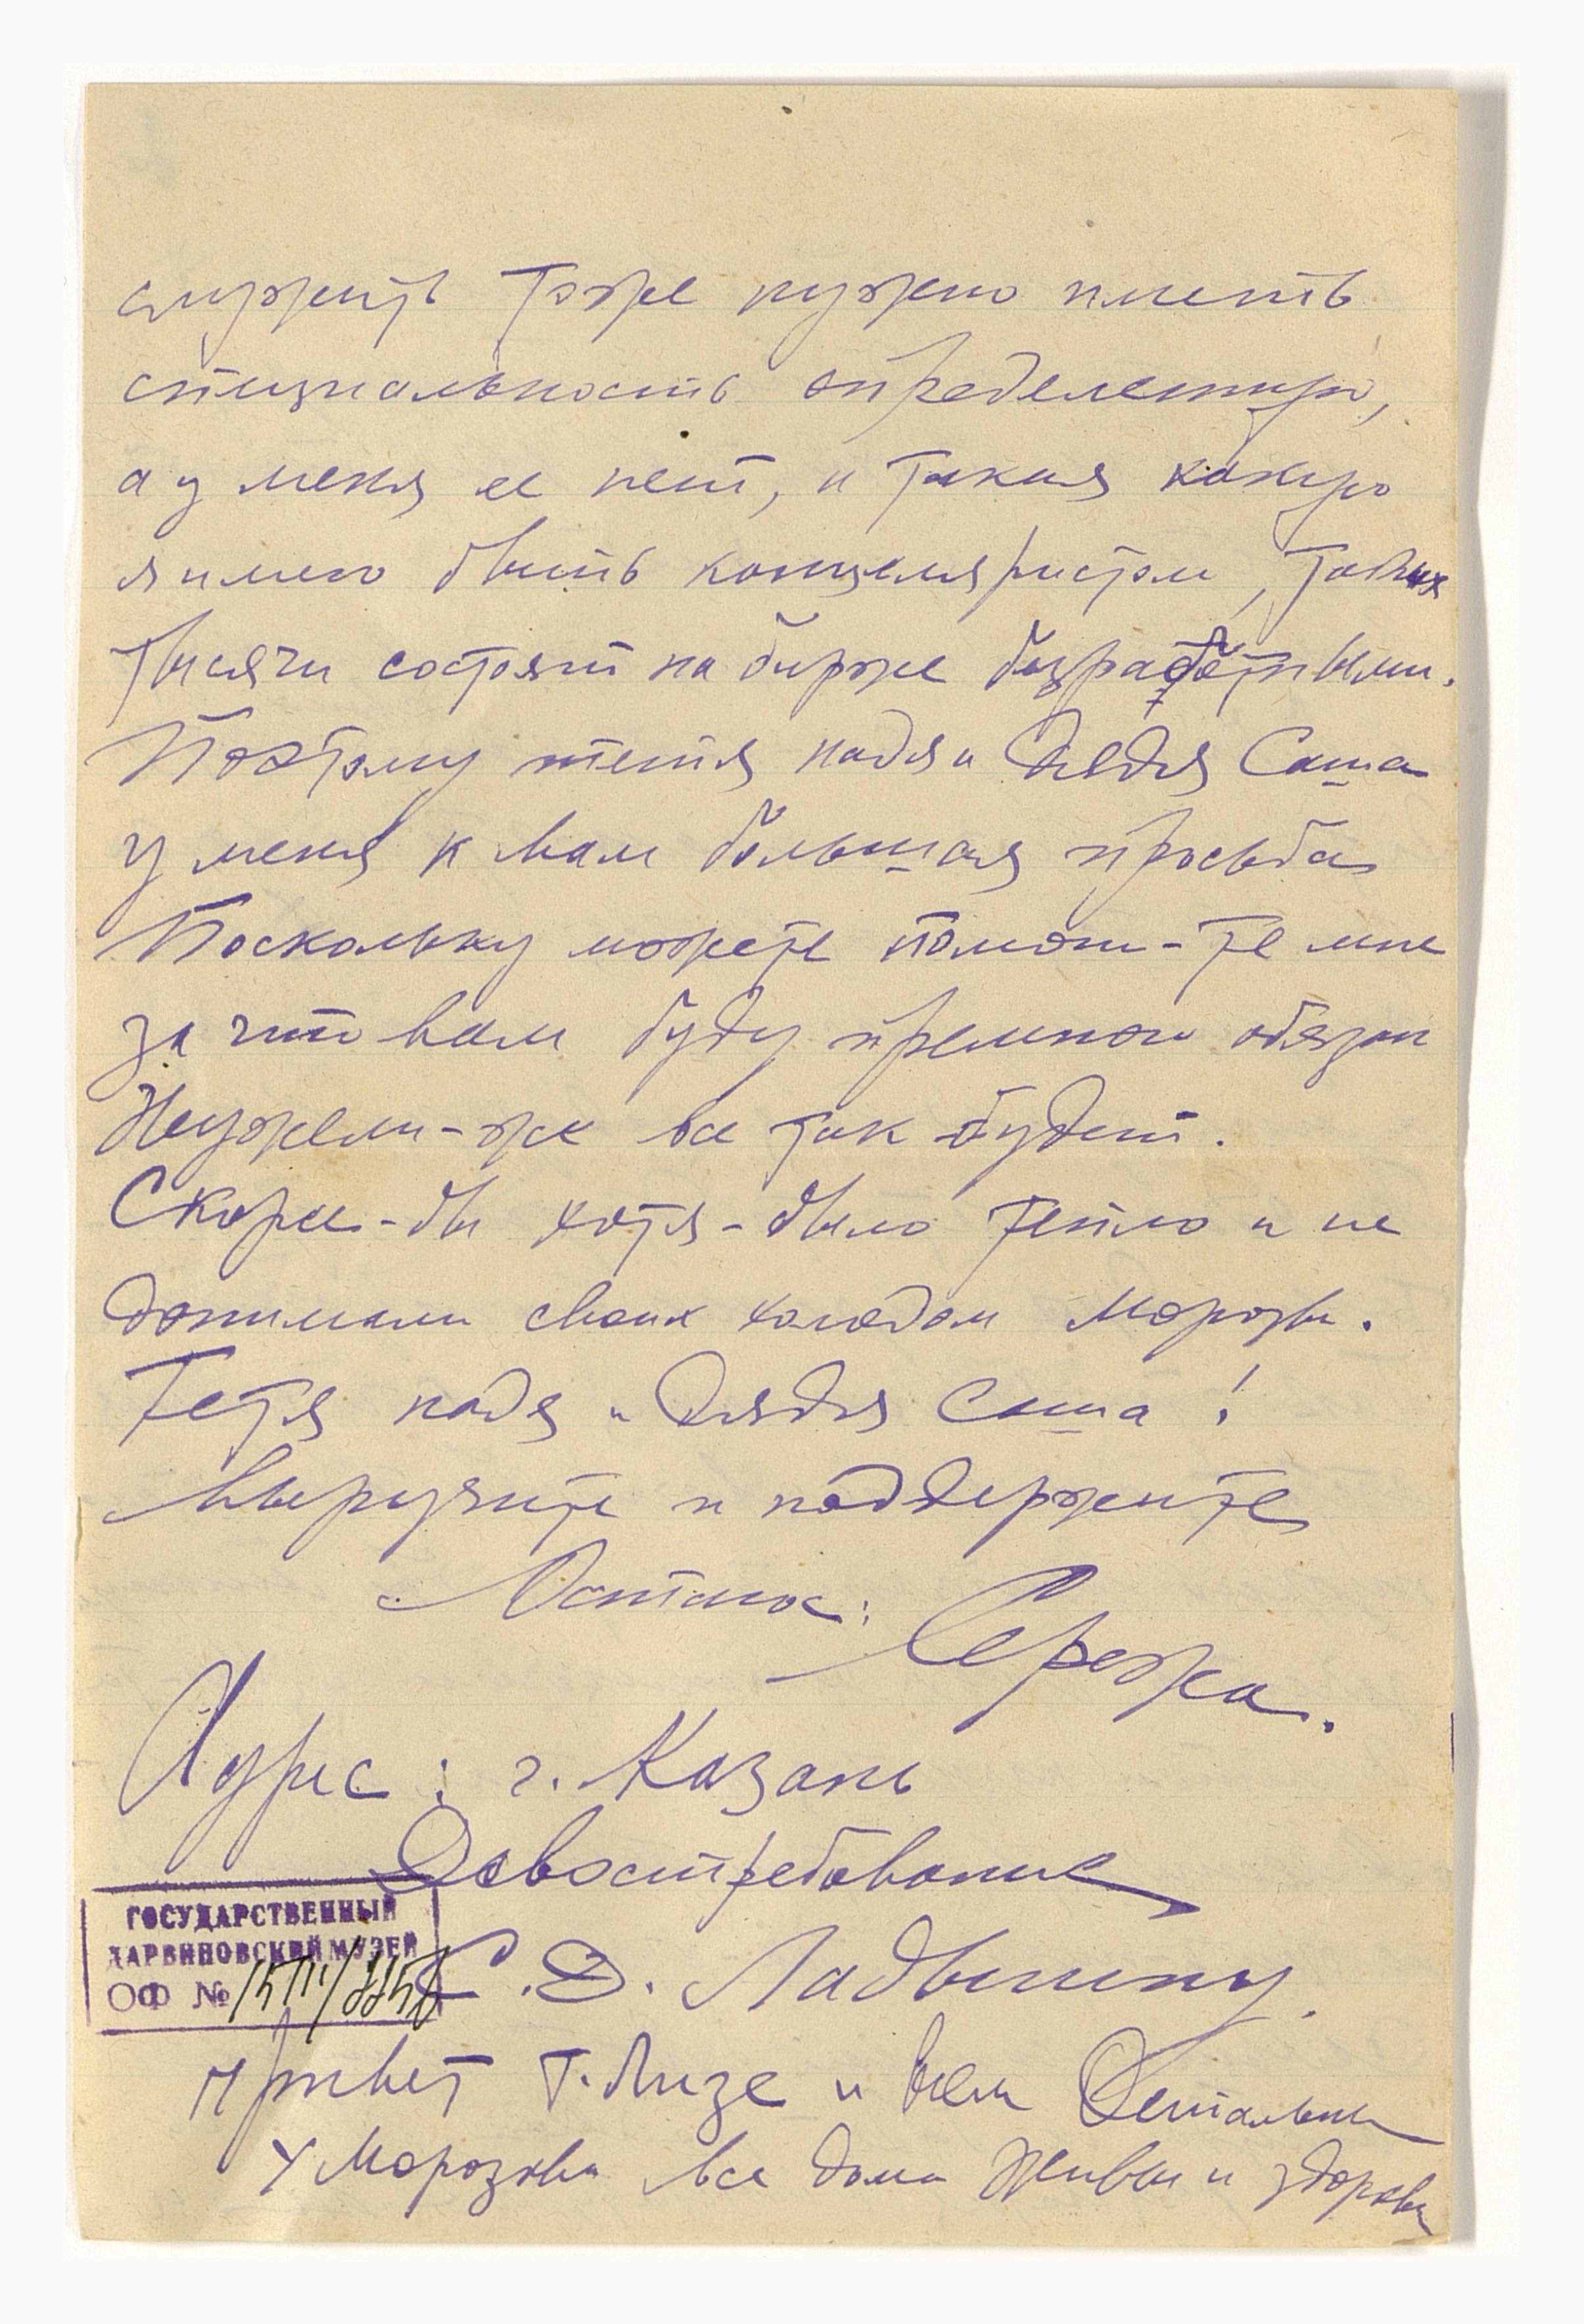 служить тоже нужно иметь
специальность определенную,
а у меня ее нет, и такая какую
я имею быть канцеляристом, таких
тысячи состоят на бирже безработными.
Поэтому тетя надя и Дядя Саша
у меня к вам большая просьба
Поскольку можете помоги-те мне
за что вам буду премного обязан
Неужели-же все так будет.
Скорее-бы хотя-было тепло и не
донимали своих холодом морозы.
Тетя надя и Дядя Саша!
выручите и поддержите
Остаюсь: Сережа.
Адрес: г. Казань
Довостребование
С. Д. Ладвинину.
ГОСУДАРСТВЕННЫЙ
ДАРВИНОВСКИЙ МУЗЕЙ
ОФ №
привет Т. Лизе и всем Остальным
У Морозовы все дома Живы и здоровы